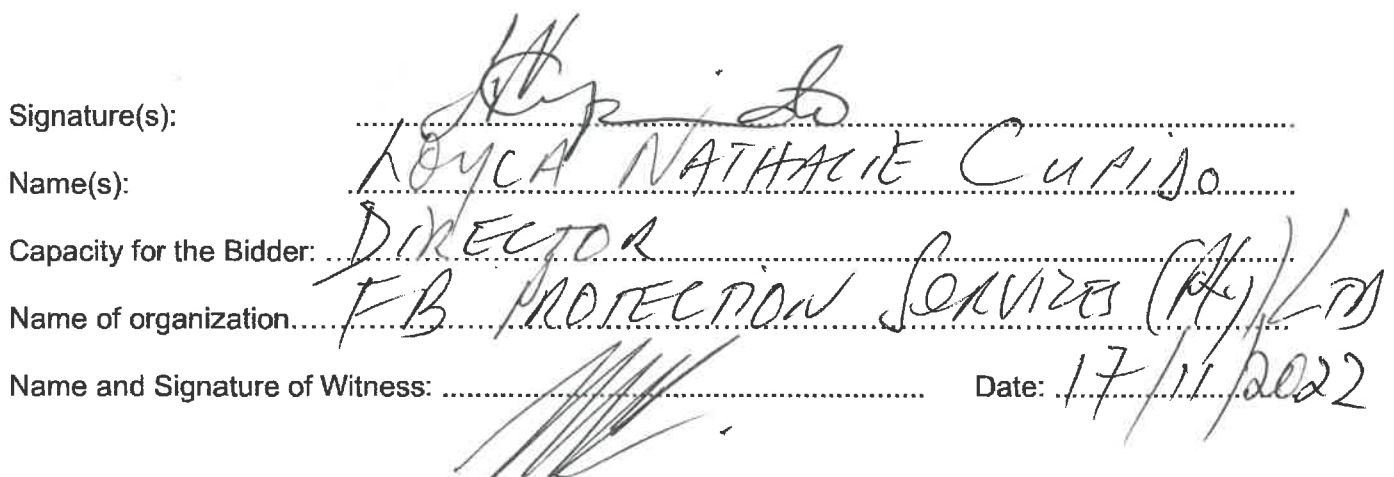 Signature(s):
Name(s): LOYCA NATHALIE CUPIDO
Capacity for the Bidder: DIRECTOR
Name of organization FB PROTECTION SERVICES (Pty) LTD
Name and Signature of Witness: Date: 17/11/2022